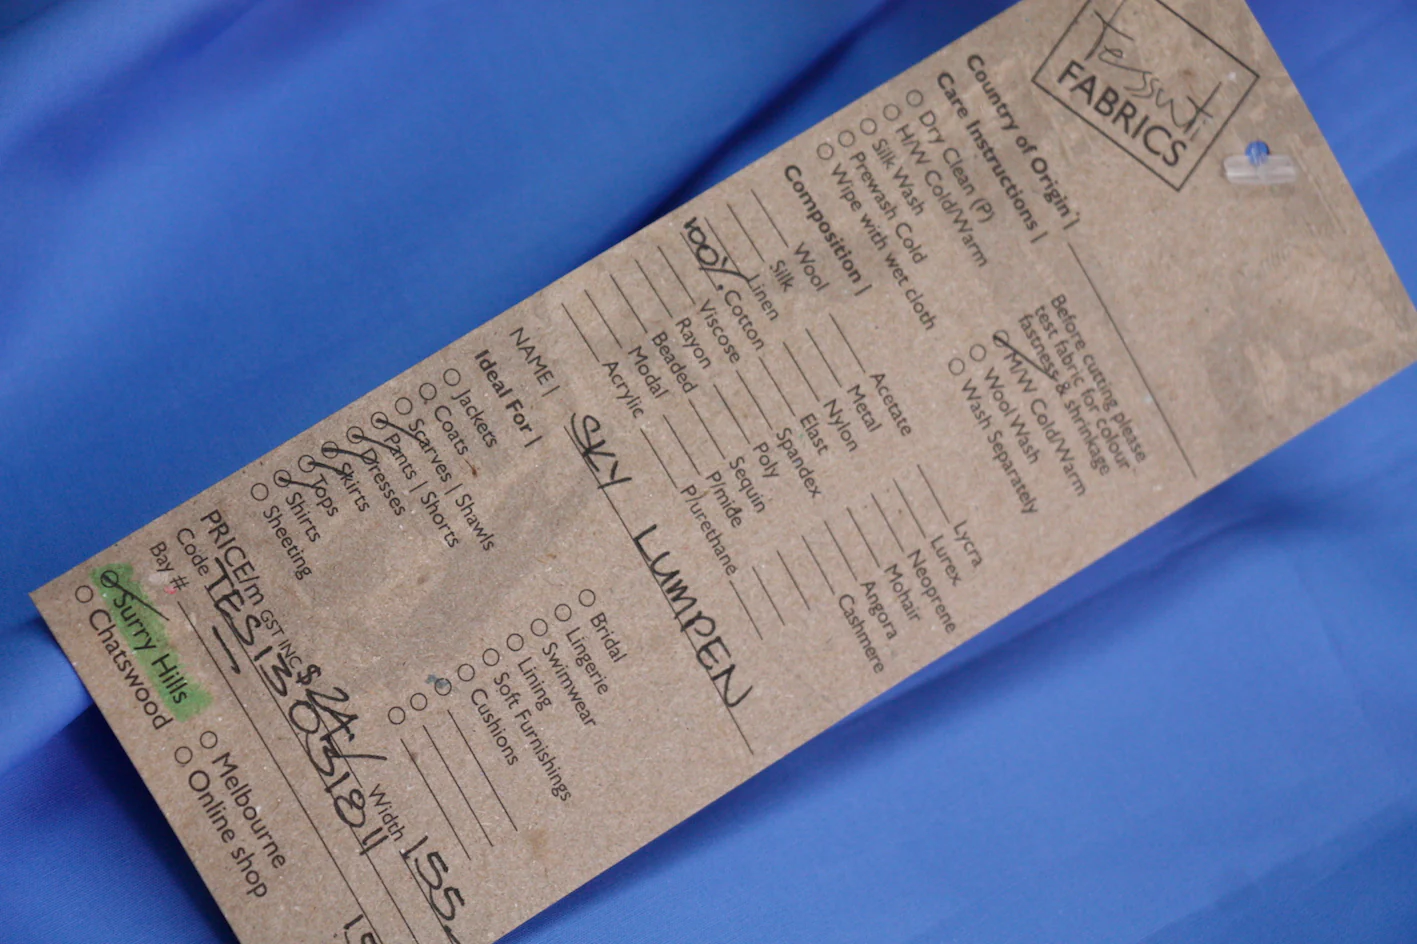 Tessuti
FABRICS
Country of Origin |
Care Instructions |
Dry Clean (P)
H/W Cold/Warm
Silk Wash
Prewash Cold
Wipe with wet cloth
Before cutting please
test fabric for colour
fastness & shrinkage
M/W Cold/Warm
Wool Wash
Wash Separately
Composition |
Wool
Silk
Linen
100% Cotton
Viscose
Rayon
Beaded
Modal
Acrylic
Acetate
Metal
Nylon
Elast
Spandex
Poly
Sequin
P/mide
P/urethane
Lycra
Lurex
Neoprene
Mohair
Angora
Cashmere
NAME | SKY LUMPEN
Ideal For |
Jackets
Coats
Scarves | Shawls
Pants | Shorts
Dresses
Skirts
Tops
Shirts
Sheeting
Bridal
Lingerie
Swimwear
Lining
Soft Furnishings
Cushions
PRICE/m GST INC $ 24 Width 155
Code TES130318 11
Bay #
Surry Hills
Chatswood
Melbourne
Online shop